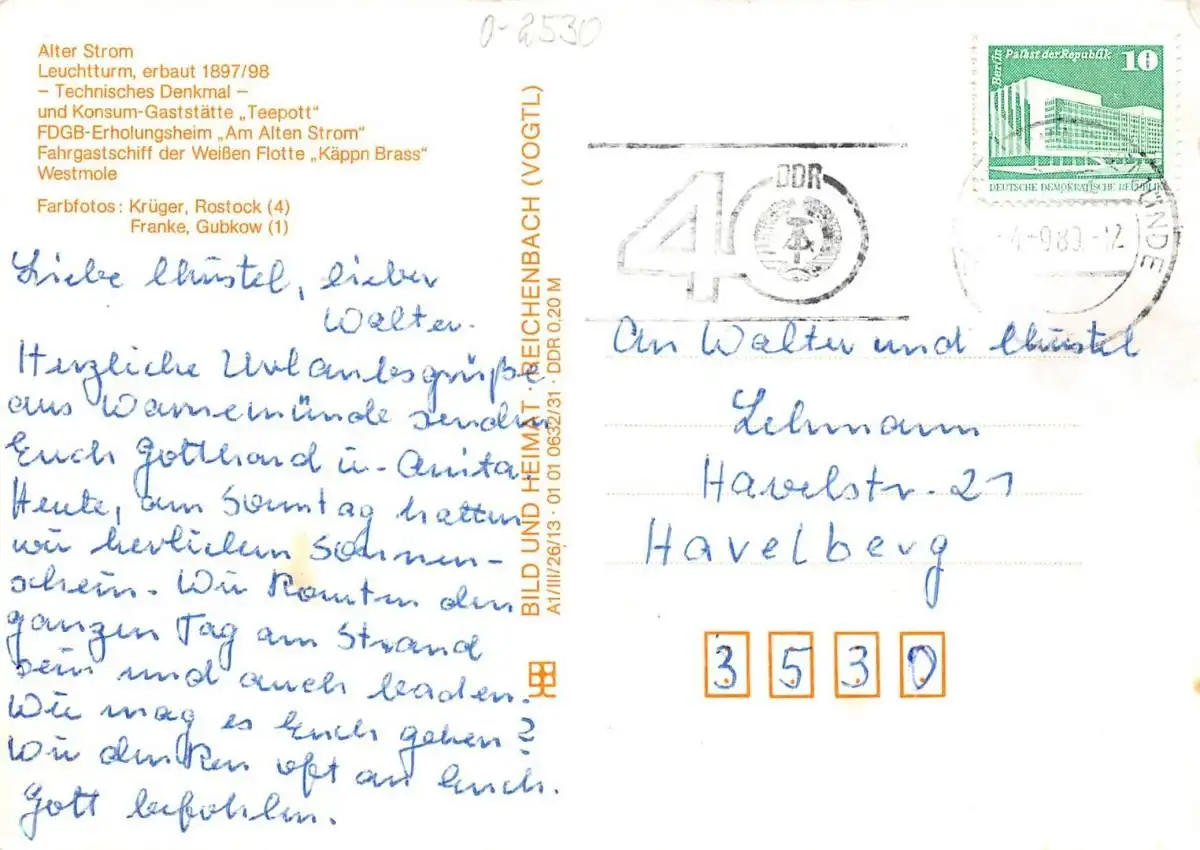 0-2530
Alter Strom
Leuchtturm, erbaut 1897/98
– Technisches Denkmal –
und Konsum-Gaststätte „Teepott"
FDGB-Erholungsheim „Am Alten Strom"
Fahrgastschiff der Weißen Flotte „Käppn Brass"
Westmole
Farbfotos: Krüger, Rostock (4)
Franke, Gubkow (1)
Liebe Christel, lieber
Walter.
Herzliche Urlaubsgrüße
aus Warnemünde senden
Euch Gotthard u. Anita.
Heute, am Sonntag hatten
wir herlichen Sonnen-
schein. Wir konnten den
ganzen Tag am Strand
sein und auch baden.
Wie mag es Euch gehen?
Wir denken oft an Euch.
Gott befohlen.
BILD UND HEIMAT · REICHENBACH (VOGTL)
A1/III/26/13 · 01 01 0632/31 · DDR 0,20 M
40
DDR
Berlin Palast der Republik 10
DEUTSCHE DEMOKRATISCHE REPUBLIK
MÜNDE
-4-989-12
An Walter und Christel
Lehmann
Havelstr. 21
Havelberg
3530